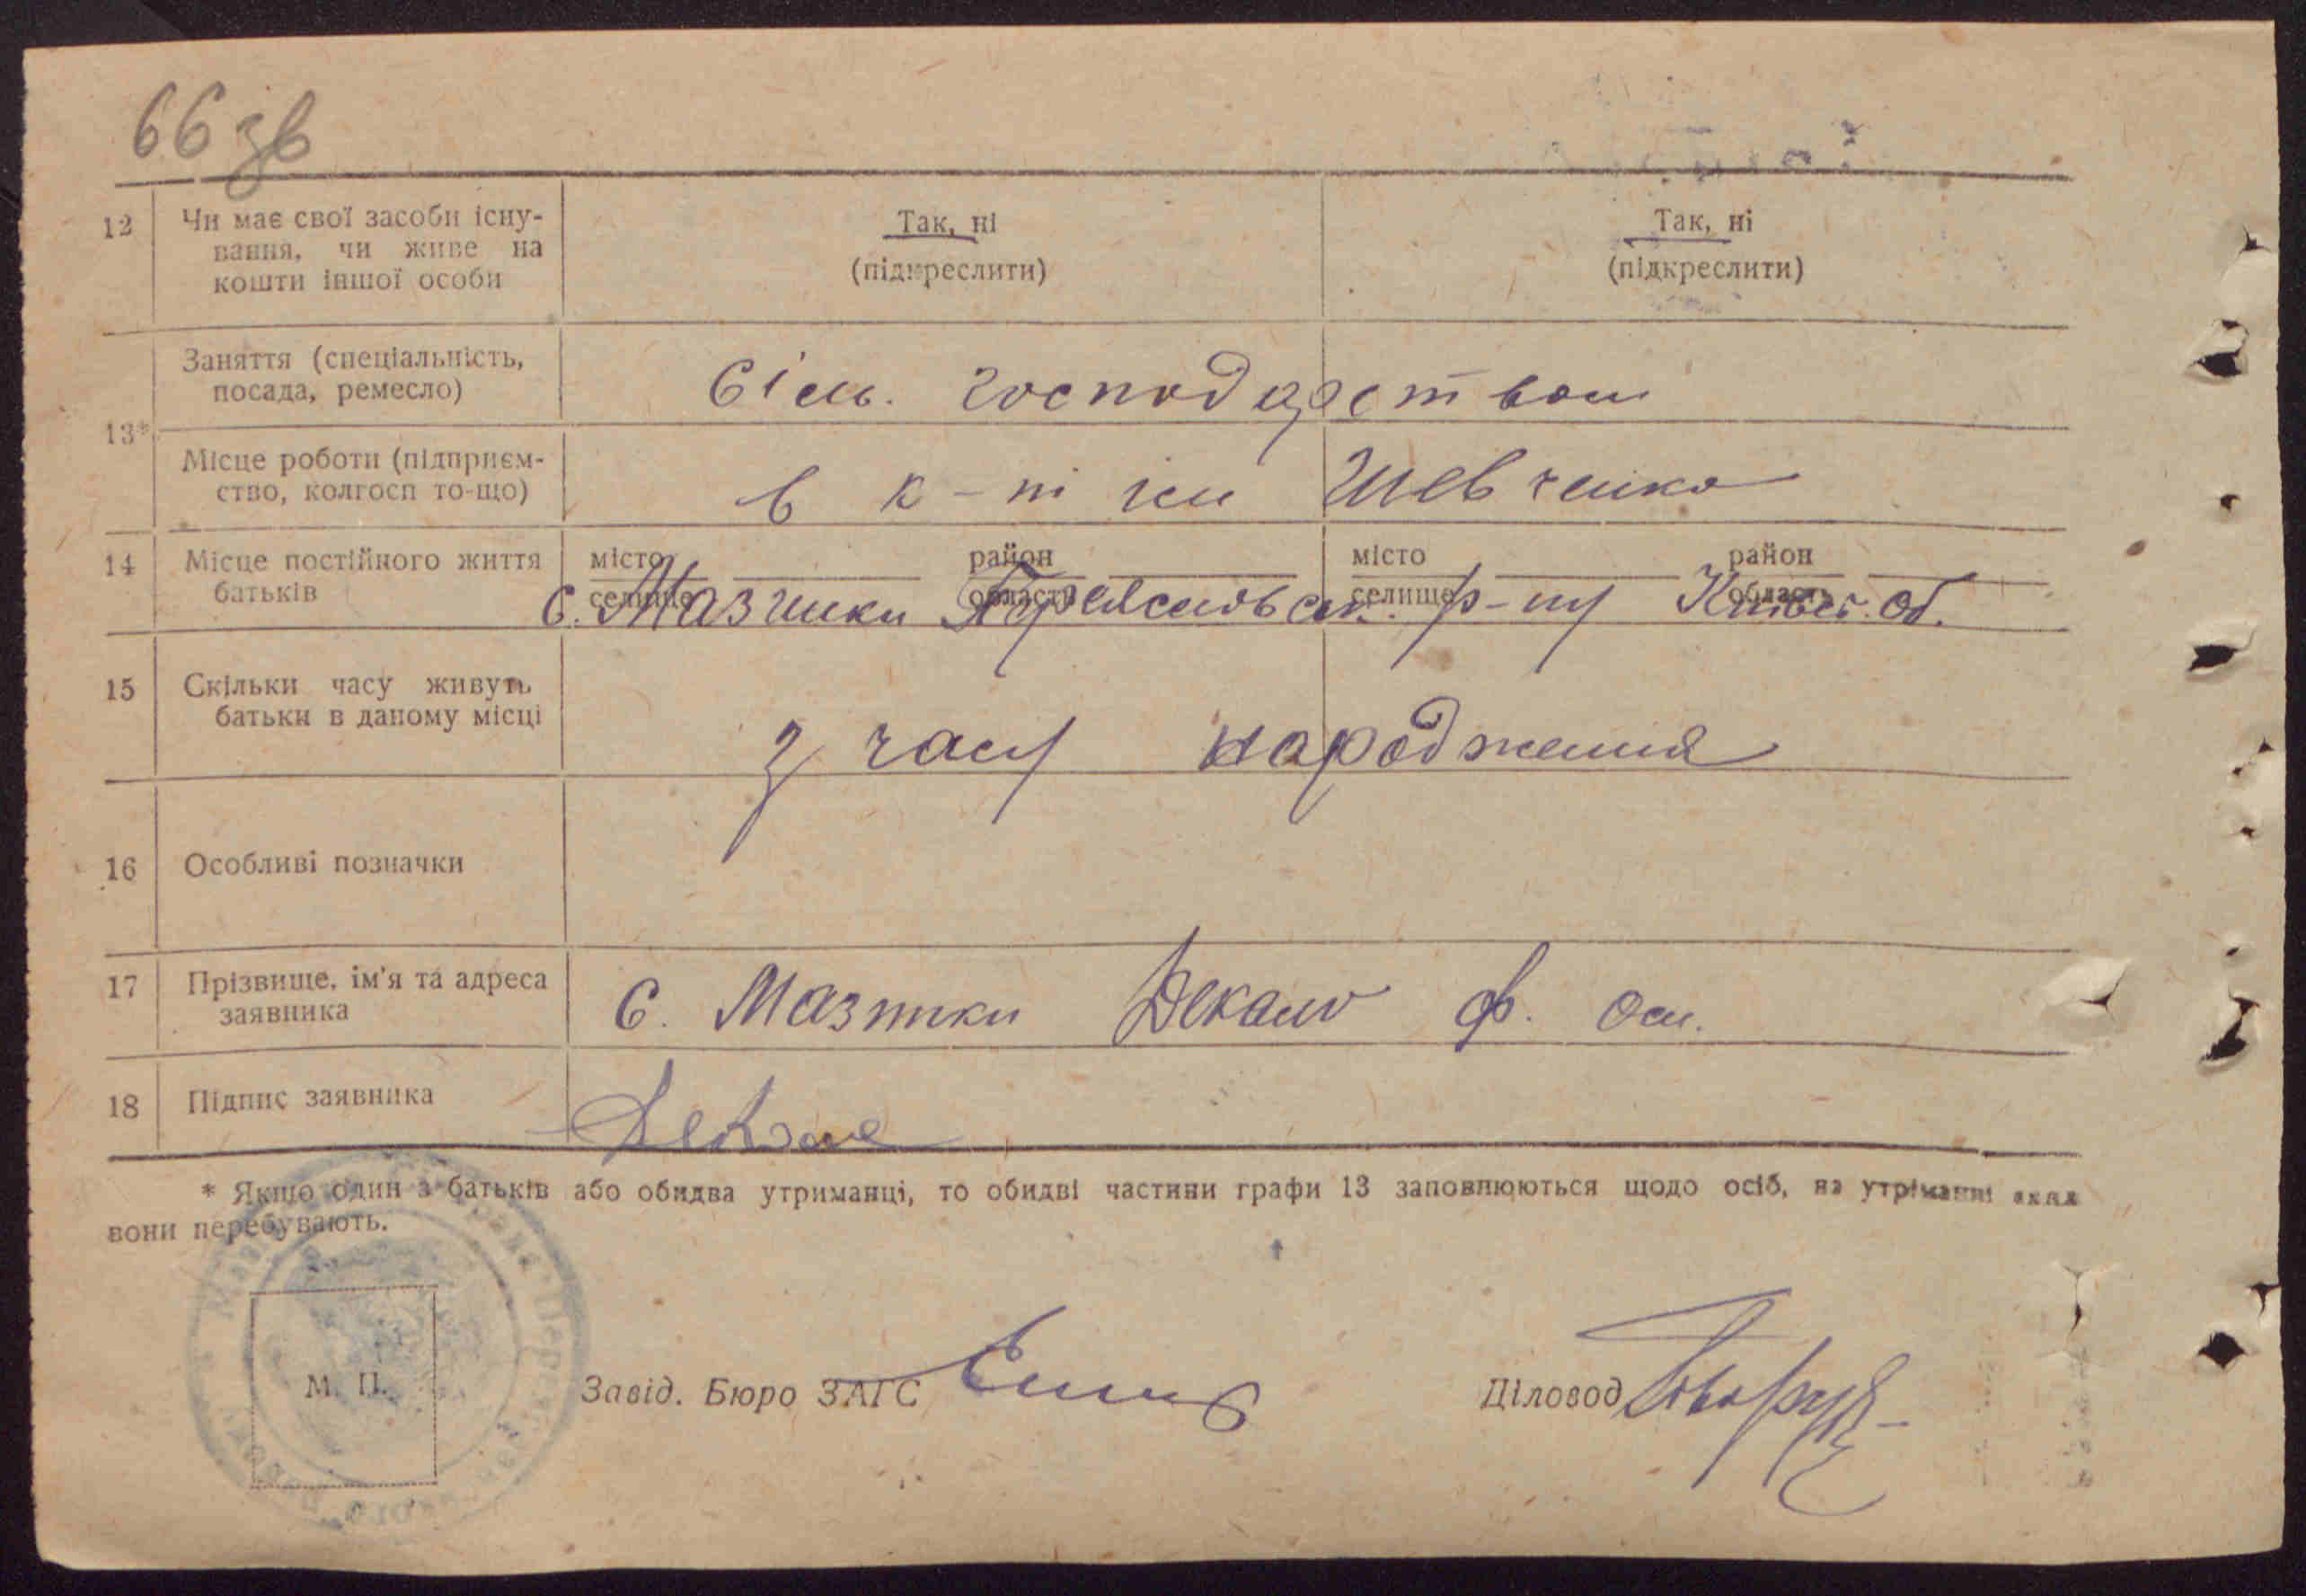 66 зв
12 Чи має свої засоби існу-
вання, чи живе на
кошти іншої особи
Так, ні
(підкреслити)
Так, ні
(підкреслити)
13*
Заняття (спеціальність,
посада, ремесло)
Сіль. господарством
Місце роботи (підприєм-
ство, колгосп то-що)
в к-пі ім Шевченка
14 Місце постійного життя
батьків
місто район місто район
селище області селище область
с. Мазінки Переясловськ. р-ну Київс. об.
15 Скільки часу живуть
батьки в даному місці
з часу народження
16 Особливі позначки
17 Прізвище, ім'я та адреса
заявника
с. Мазінки Декало Ф. Ом.
18 Підпис заявника
Декало
* Якщо один з батьків або обидва утриманці, то обидві частини графи 13 заповнюються щодо осіб, на утриманні яких
вони перебувають.
М. П.
Завід. Бюро ЗАГС
Діловод